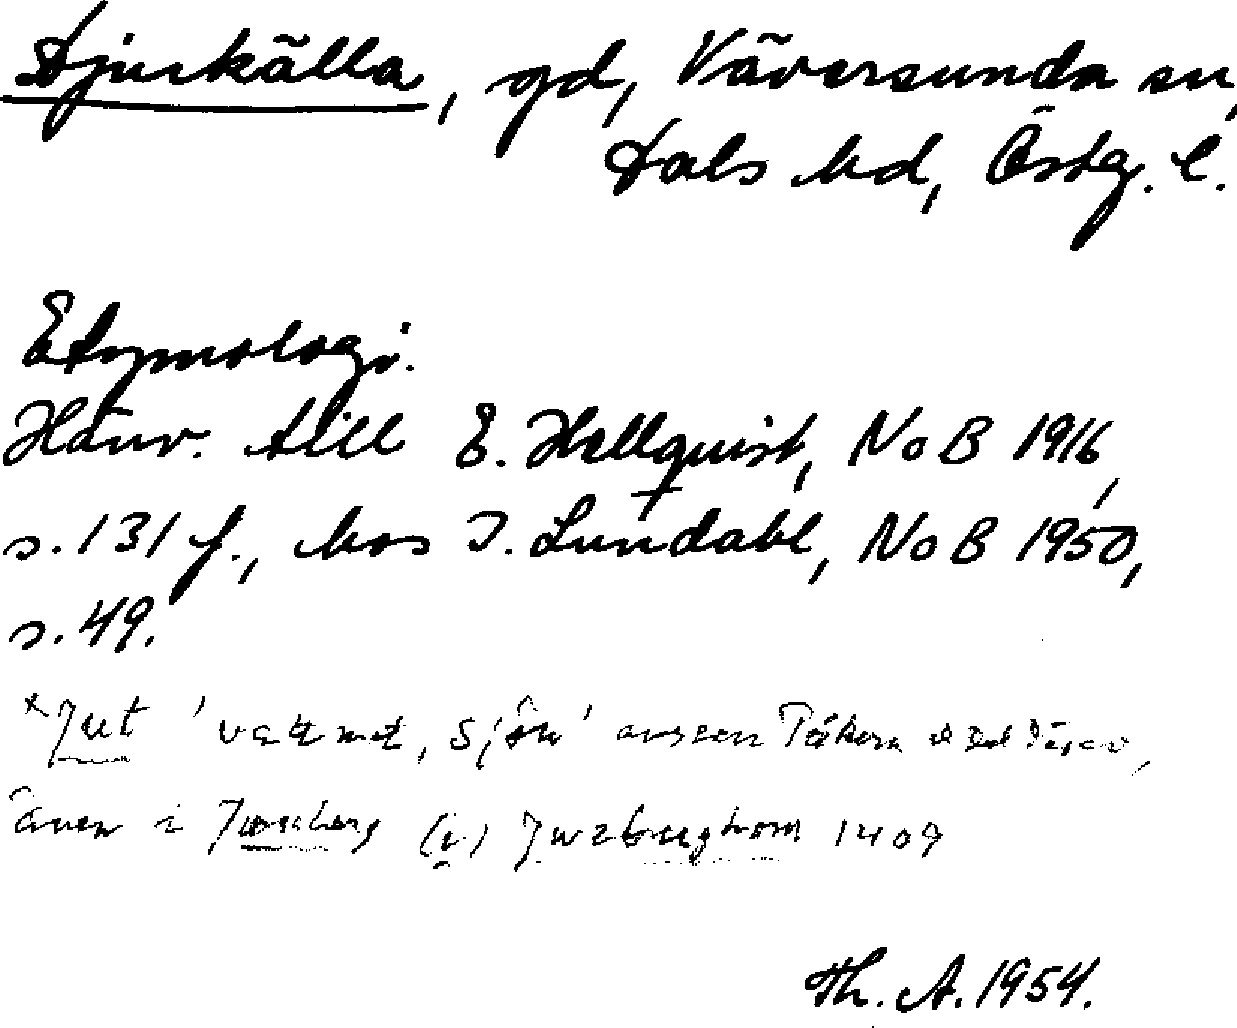 Djurkälla, gd, Väversunda sn,
Dals hd, Östg. l.
Etymologi.
Hänv. till E. Hellquist, NoB 1916,
s. 131 f., hos I. Lundahl, NoB 1950,
s. 49.
*Jut 'vattnet, sjön' avseen Tåkern
även i (i) 1409
Th. A. 1954.